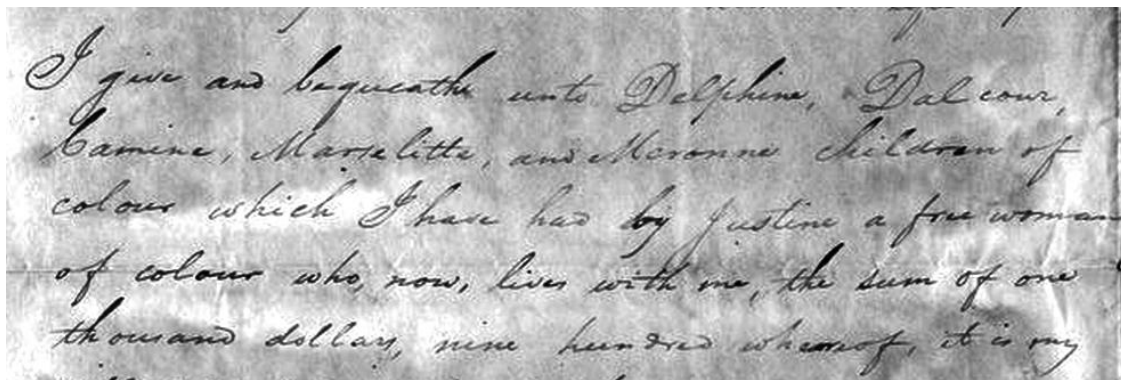 I give and bequeathe unto Delphine, Dalcour,
Camine, Marselitte, and Meronne children of
colour which I have had by Justine a free woman
of colour who, now, lives with me, the sum of one
thousand dollars, nine hundred whereof, it is my